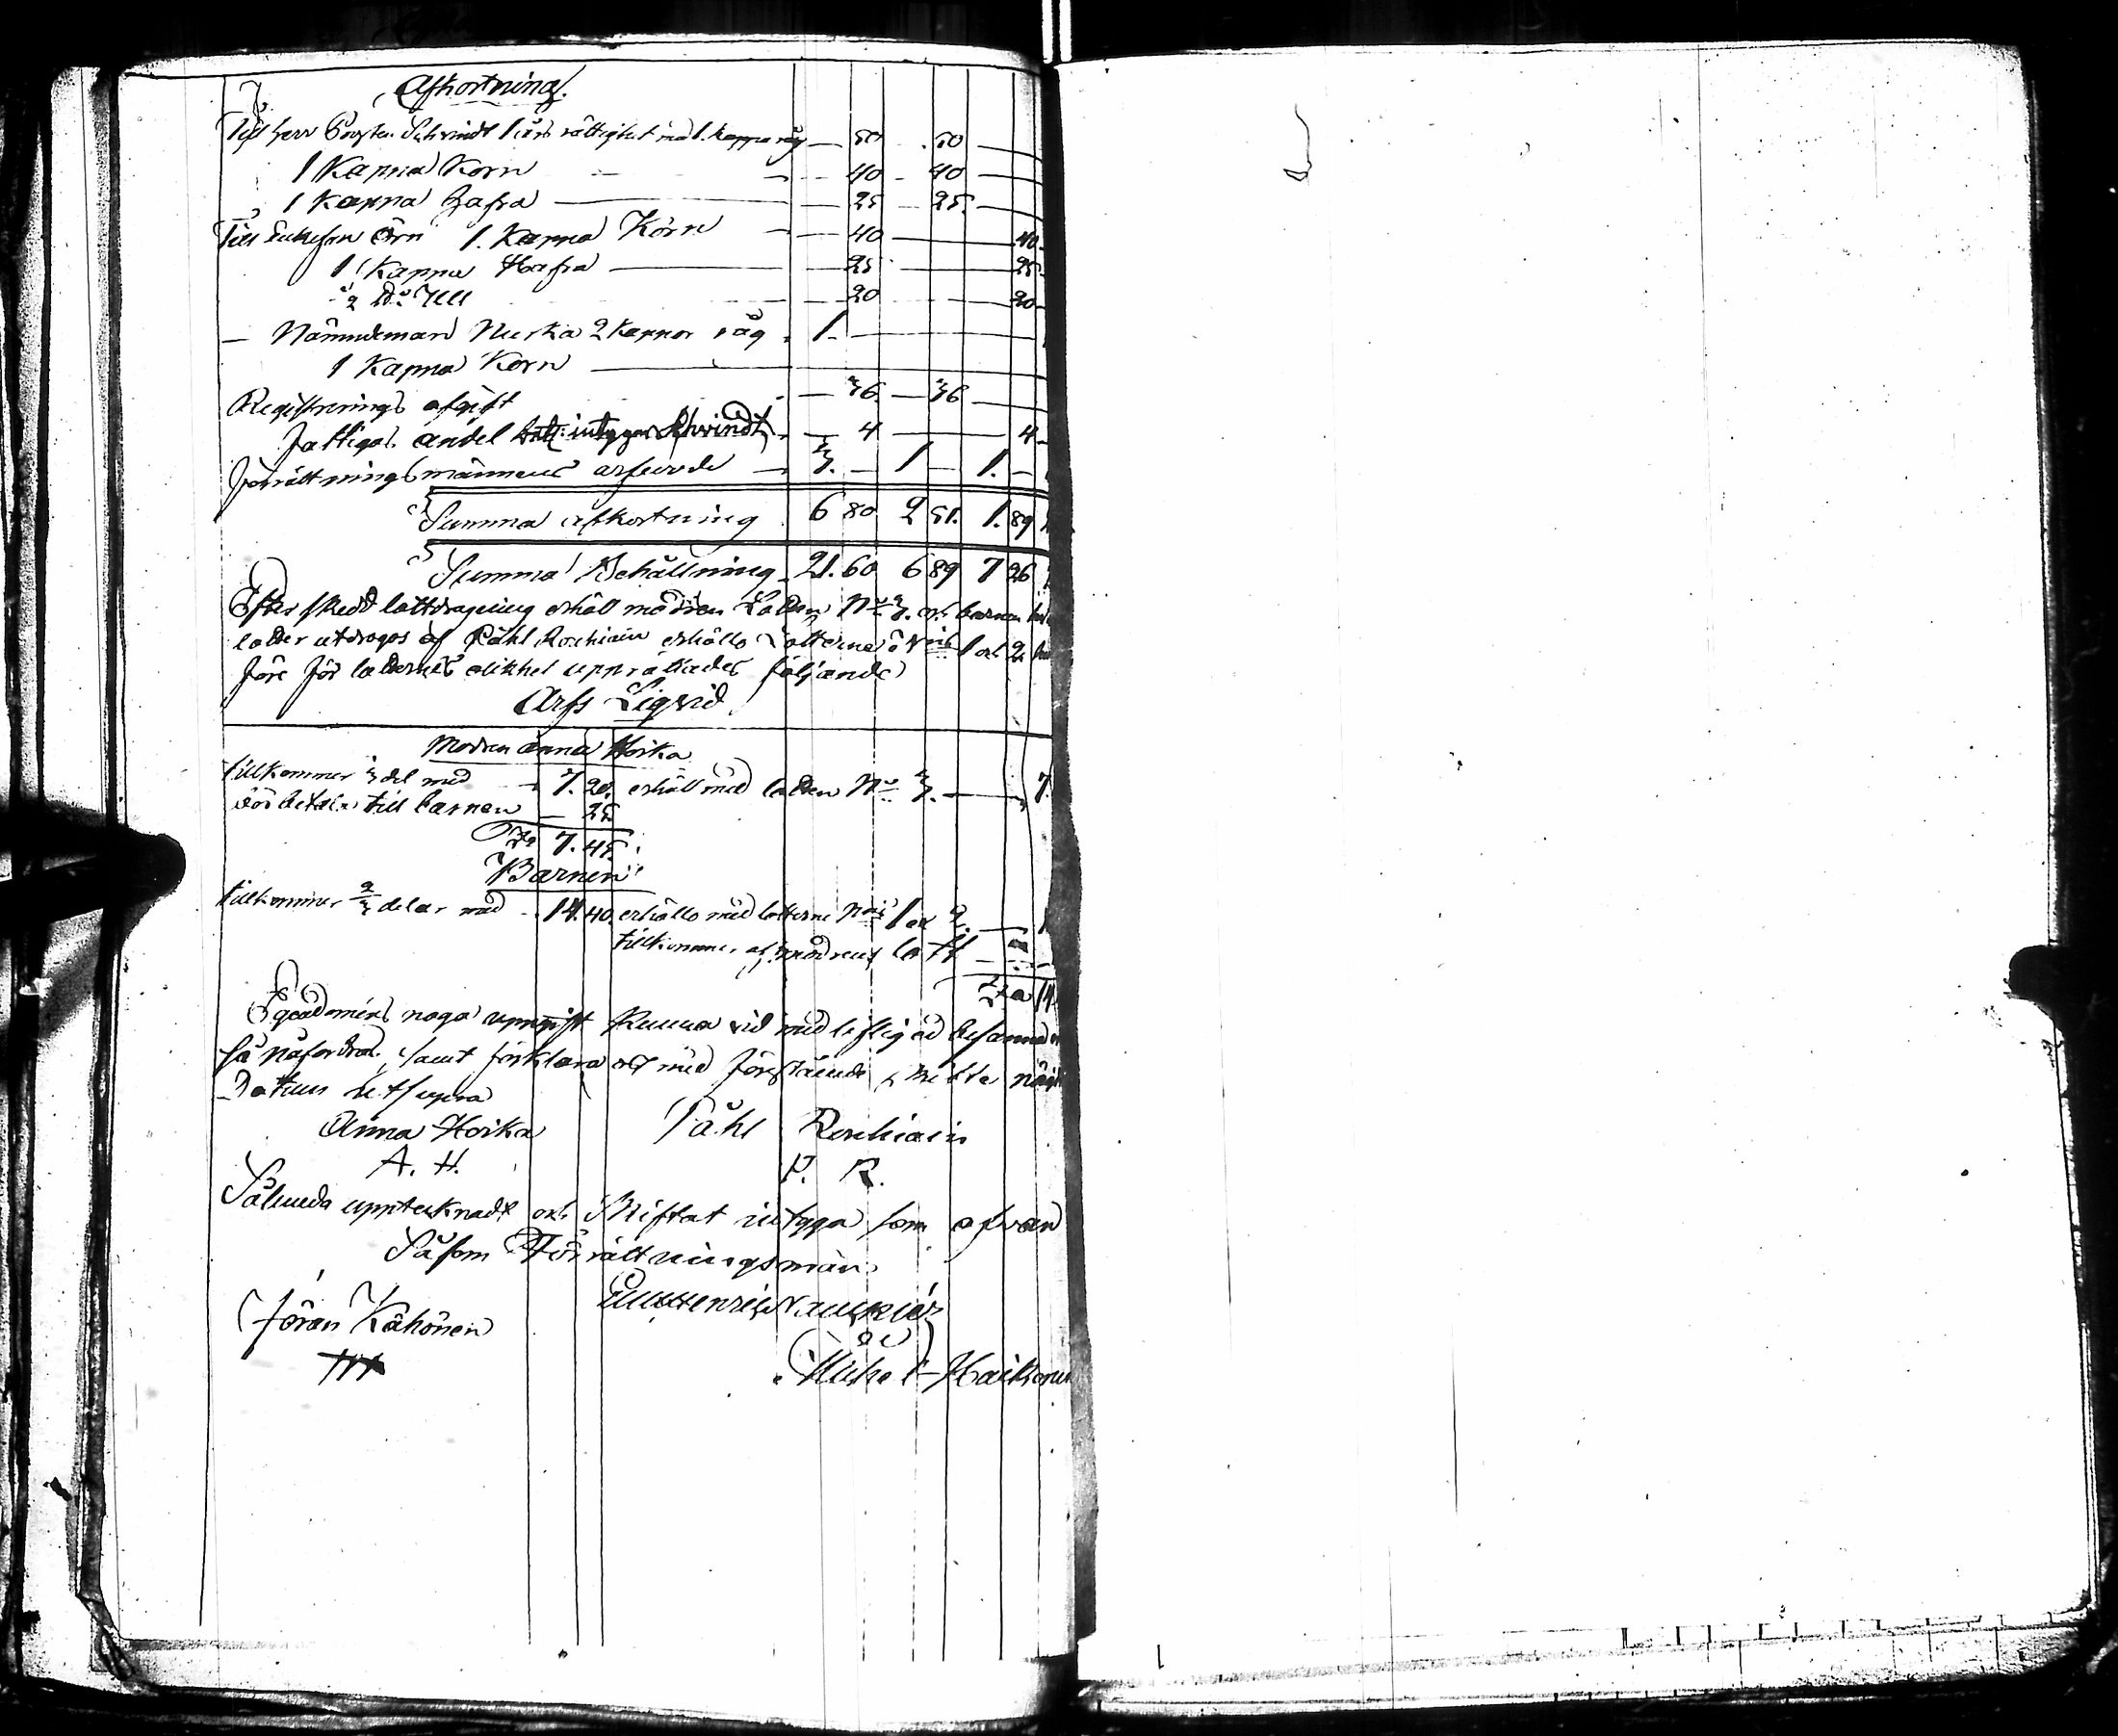 Afkortning.
Till Herr Schvindt 1 års rättighet med 1. kappa råg — 50 — 50 —
1 Kappa Korn — 40 — 40 —
1 Kappa Hafra — 25 — 25. —
Till Örn 1. Kappa Korn — 40 — 40.
1 Kappa Hafra — 25 — 25
½ D:o — 20 — 20
— Nämndeman Nurka 2 Kappor råg . 1. —
1 Kappa Korn —
Registrerings afgift — 36. — 36 —
Fattigas andel intygar Schvindt. — 4 — 4
Förrättningsmännens arfvode — 3. — 1 — 1. —
Summa afkortning 6 80 2 51. 1. 89
Summa Behållning 21. 60 6 89 7 26
Efter skedd lottdragning erhöll modren Lotten N:o 3. och barnen
lotter utdrogos af Påhl erhöllo Lotterne N:is 1 och 2
före för lotternes olikhet upprättades följande
Arfs Liqvid.
Modren Anna Hoika
tillkommer ⅓ del med — 7. 20. erhöll med lotten N:o 3. — 7.
bör betala till barnen — 25
S:a 7. 45.
Barnen
tillkommer ⅔ delar med — 14. 40. erhöllo med lotterne N:is 1 och 2. — 1
tillkommer af modrens lott
S:a 14
noga uppgift kunna vid med liflig ed
så påfordras, samt förklara oss med föreståande skifte nöjde
Datum ut supra
Anna Hoika Påhl
A. H. P. R.
Sålunda upptecknadt och Skiftat intyga som ofvan
Såsom Förrättningsmän.
Jöran Kähönen